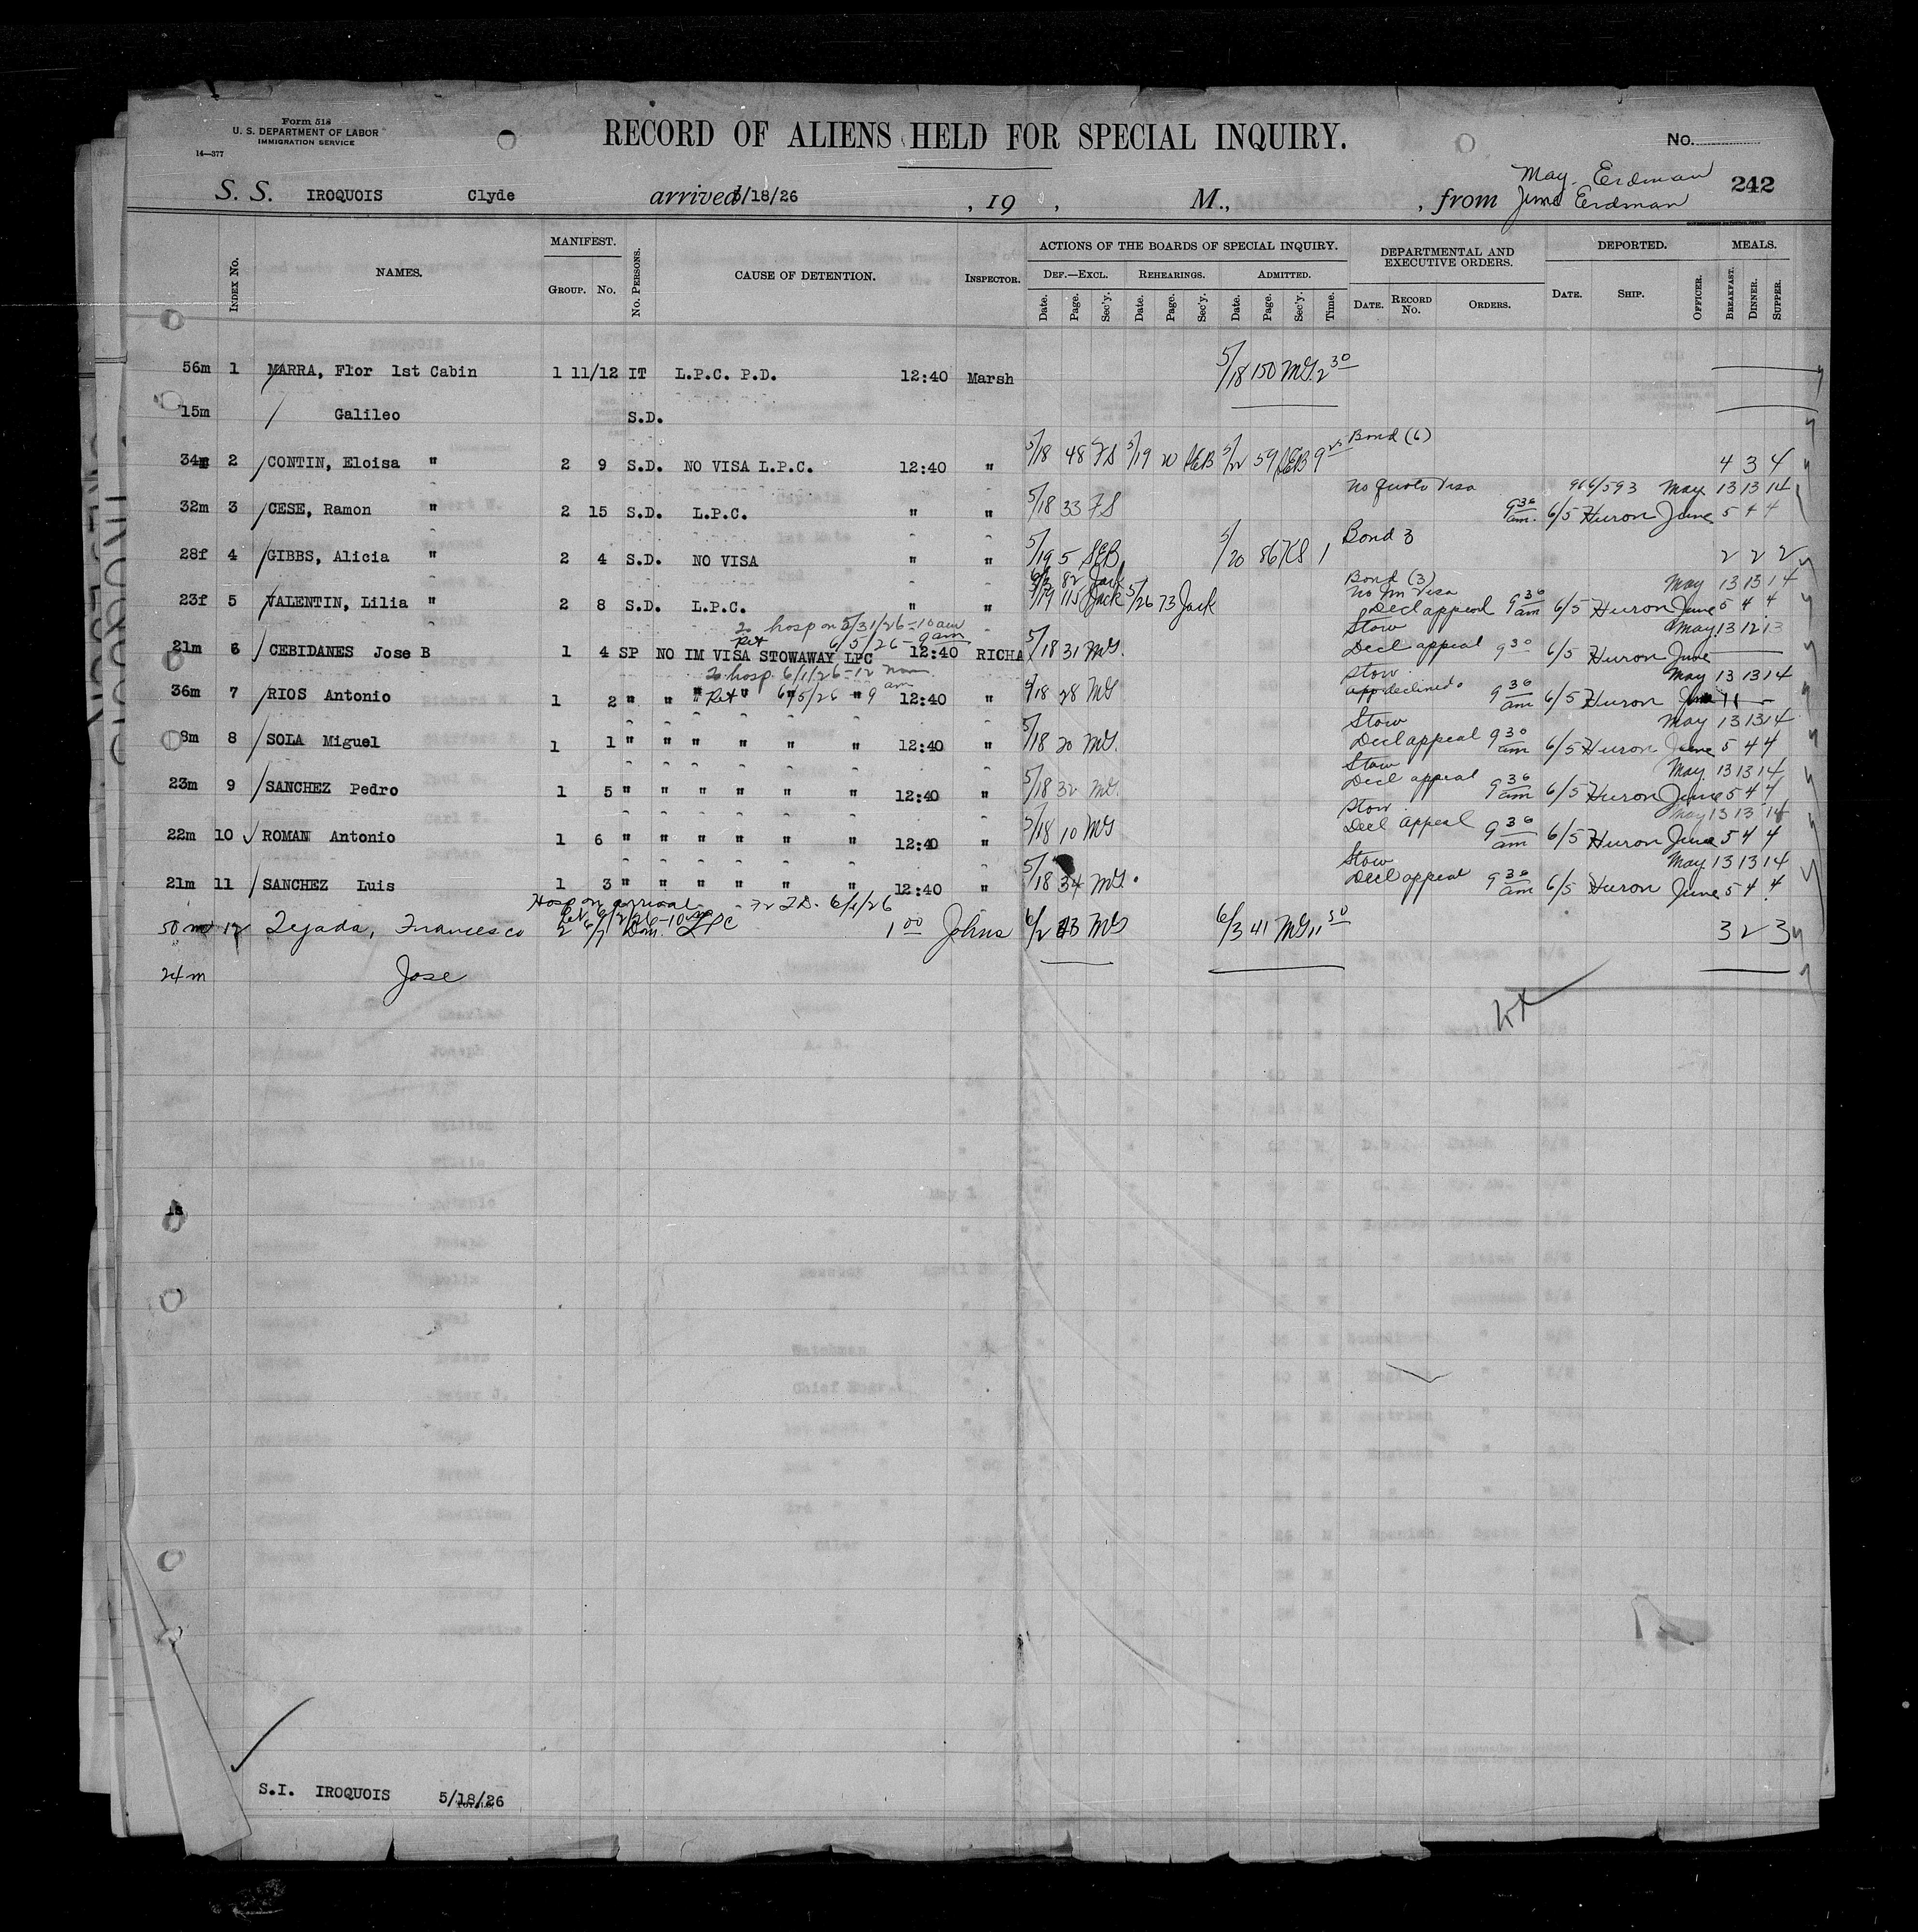 Form 518
U. S. DEPARTMENT OF LABOR
IMMIGRATION SERVICE
14—377
RECORD OF ALIENS HELD FOR SPECIAL INQUIRY.
No.
S. S. IROQUOIS Clyde arrived 5/18/26 , 19 , M., , from May. Erdman
June Erdman
242
INDEX No. NAMES. MANIFEST. GROUP. No. No. PERSONS. CAUSE OF DETENTION. INSPECTOR. ACTIONS OF THE BOARDS OF SPECIAL INQUIRY. DEF.—EXCL. REHEARINGS. ADMITTED. DEPARTMENTAL AND EXECUTIVE ORDERS. DEPORTED. MEALS.
Date. Page. Sec'y. Date. Page. Sec'y. Date. Page. Sec'y. Time. DATE. RECORD No. ORDERS. DATE. SHIP. OFFICER. BREAKFAST. DINNER. SUPPER.
56m 1 MARRA, Flor 1st Cabin 1 11/12 IT L.P.C. P.D. 12:40 Marsh 5/18 150 MG. 2 30
15m Galileo S.D.
Bond (6)
34m 2 CONTIN, Eloisa " 2 9 S.D. NO VISA L.P.C. 12:40 " 5/18 48 FS 5/19 20 SEB 5/22 59 SEB 9 25 4 3 4
No Quota Visa 916/593 May 13 13 14
32m 3 CESE, Ramon " 2 15 S.D. L.P.C. " " 5/18 33 FS 9 30 am. 6/5 Huron June 5 4 4
Bond 3
28f 4 GIBBS, Alicia " 2 4 S.D. NO VISA " " 5/19 5 SEB 5/20 86 KS 1 2 2 2
82 Jack Bond (3) May 13 13 14
No Im Visa
23f 5 VALENTIN, Lilia " 2 8 S.D. L.P.C. " " 5/19 115 Jack 5/26 73 Jack Decl appeal 9 30 am 6/5 Huron June 5 4 4
To hosp on 5/31/26-10 am Stow May 13 12 13
Ret 6/5/26-9 am
21m 6 CEBIDANES Jose B 1 4 SP NO IM VISA STOWAWAY LPC 12:40 RICHA 5/18 31 MG. Decl appeal 9 30 6/5 Huron June
To hosp. 6/1/26-12 noon Stow. May 13 13 14
36m 7 RIOS Antonio 1 2 " " " Ret " 6/5/26 " 9 am 12:40 " 5/18 28 MG App declined 9 30 am 6/5 Huron June 1 1 -
Stow May 13 13 14
8m 8 SOLA Miguel 1 1 " " " " " " 12:40 " 5/18 20 MG. Decl appeal 9 30 am 6/5 Huron June 5 4 4
Stow May. 13 13 14
23m 9 SANCHEZ Pedro 1 5 " " " " " " 12:40 " 5/18 32 MG. Decl appeal 9 30 am 6/5 Huron June 5 4 4
Stow. May 13 13 14
22m 10 ROMAN Antonio 1 6 " " " " " " 12:40 " 5/18 10 MG Decl appeal 9 30 am 6/5 Huron June 5 4 4
Stow May 13 13 14
21m 11 SANCHEZ Luis 1 3 " " " " " " 12:40 " 5/18 34 MG. Decl appeal 9 30 am 6/5 Huron June 5 4 4
Hosp on arrival 6/1/26
Ret. 6/2/26-10 am
50 m 12 Tejada, Francesco 2 6/7 Dom. LPC 1 00 Johns 6/2 MG 6/3 41 MG 11 50 3 2 3
24 m Jose
S.I. IROQUOIS 5/18/26